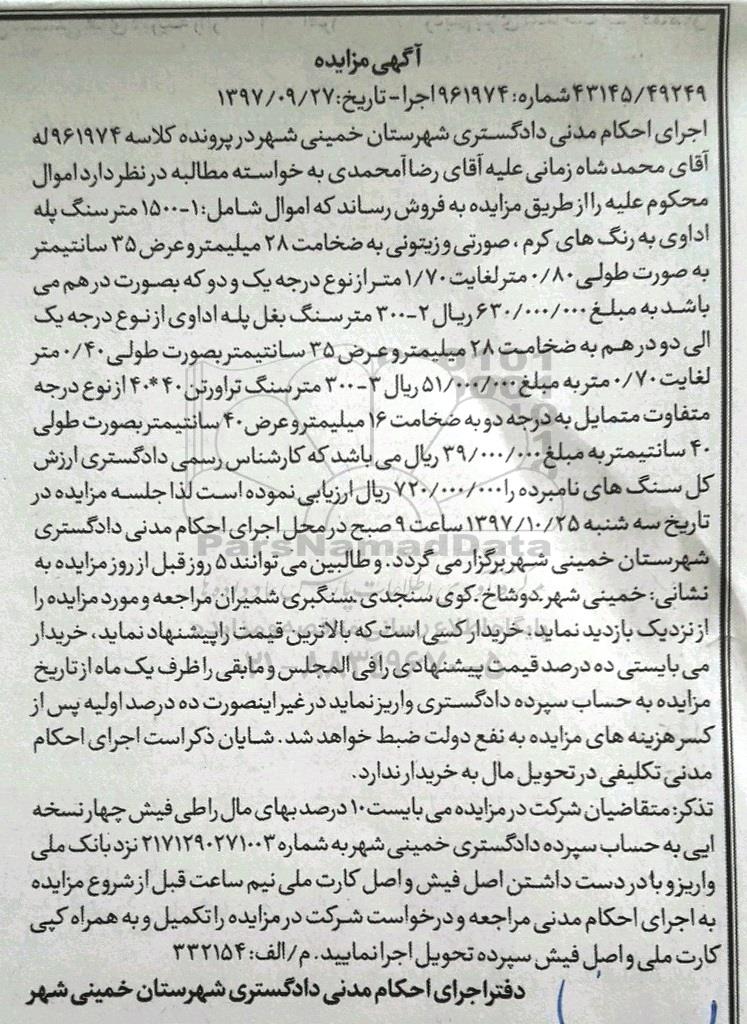 آگهی مزایده
۴۳۱۴۵/۴۹۲۴۹ شماره: ۹۶۱۹۷۴ اجرا - تاریخ: ۱۳۹۷/۰۹/۲۷
اجرای احکام مدنی دادگستری شهرستان خمینی شهر در پرونده کلاسه ۹۶۱۹۷۴ له
آقای محمد شاه زمانی علیه آقای رضا آمحمدی به خواسته مطالبه در نظر دارد اموال
محکوم علیه را از طریق مزایده به فروش رساند که اموال شامل: ۱-۱۵۰۰ متر سنگ پله
اداوی به رنگ های کرم، صورتی و زیتونی به ضخامت ۲۸ میلیمتر و عرض ۳۵ سانتیمتر
به صورت طولی ۰/۸۰ متر لغایت ۱/۷۰ متر از نوع درجه یک و دو که بصورت در هم می
باشد به مبلغ ۶۳۰/۰۰۰/۰۰۰ ریال ۲-۳۰۰ متر سنگ بغل پله اداوی از نوع درجه یک
الی دو در هم به ضخامت ۲۸ میلیمتر و عرض ۳۵ سانتیمتر بصورت طولی ۰/۴۰ متر
لغایت ۰/۷۰ متر به مبلغ ۵۱/۰۰۰/۰۰۰ ریال ۳-۳۰۰ متر سنگ تراورتن ۴۰*۴۰ از نوع درجه
متفاوت متمایل به درجه دو به ضخامت ۱۶ میلیمتر و عرض ۴۰ سانتیمتر بصورت طولی
۴۰ سانتیمتر به مبلغ ۳۹/۰۰۰/۰۰۰ ریال می باشد که کارشناس رسمی دادگستری ارزش
کل سنگ های نامبرده را ۷۲۰/۰۰۰/۰۰۰ ریال ارزیابی نموده است لذا جلسه مزایده در
تاریخ سه شنبه ۱۳۹۷/۱۰/۲۵ ساعت ۹ صبح در محل اجرای احکام مدنی دادگستری
شهرستان خمینی شهر برگزار می گردد. و طالبین می توانند ۵ روز قبل از روز مزایده به
نشانی: خمینی شهر.دوشاخ.کوی سنجدی.سنگبری شمیران مراجعه و مورد مزایده را
از نزدیک بازدید نماید: خریدار کسی است که بالاترین قیمت را پیشنهاد نماید، خریدار
می بایستی ده درصد قیمت پیشنهادی را فی المجلس و مابقی را ظرف یک ماه از تاریخ
مزایده به حساب سپرده دادگستری واریز نماید در غیر اینصورت ده درصد اولیه پس از
کسر هزینه های مزایده به نفع دولت ضبط خواهد شد. شایان ذکر است اجرای احکام
مدنی تکلیفی در تحویل مال به خریدار ندارد.
تذکر: متقاضیان شرکت در مزایده می بایست ۱۰ درصد بهای مال را طی فیش چهار نسخه
ایی به حساب سپرده دادگستری خمینی شهر به شماره ۲۱۷۱۲۹۰۲۷۱۰۰۳ نزد بانک ملی
واریز و با در دست داشتن اصل فیش و اصل کارت ملی نیم ساعت قبل از شروع مزایده
به اجرای احکام مدنی مراجعه و درخواست شرکت در مزایده را تکمیل و به همراه کپی
کارت ملی و اصل فیش سپرده تحویل اجرا نمایید. م/الف: ۳۳۲۱۵۴
دفتر اجرای احکام مدنی دادگستری شهرستان خمینی شهر
ParsNamadData